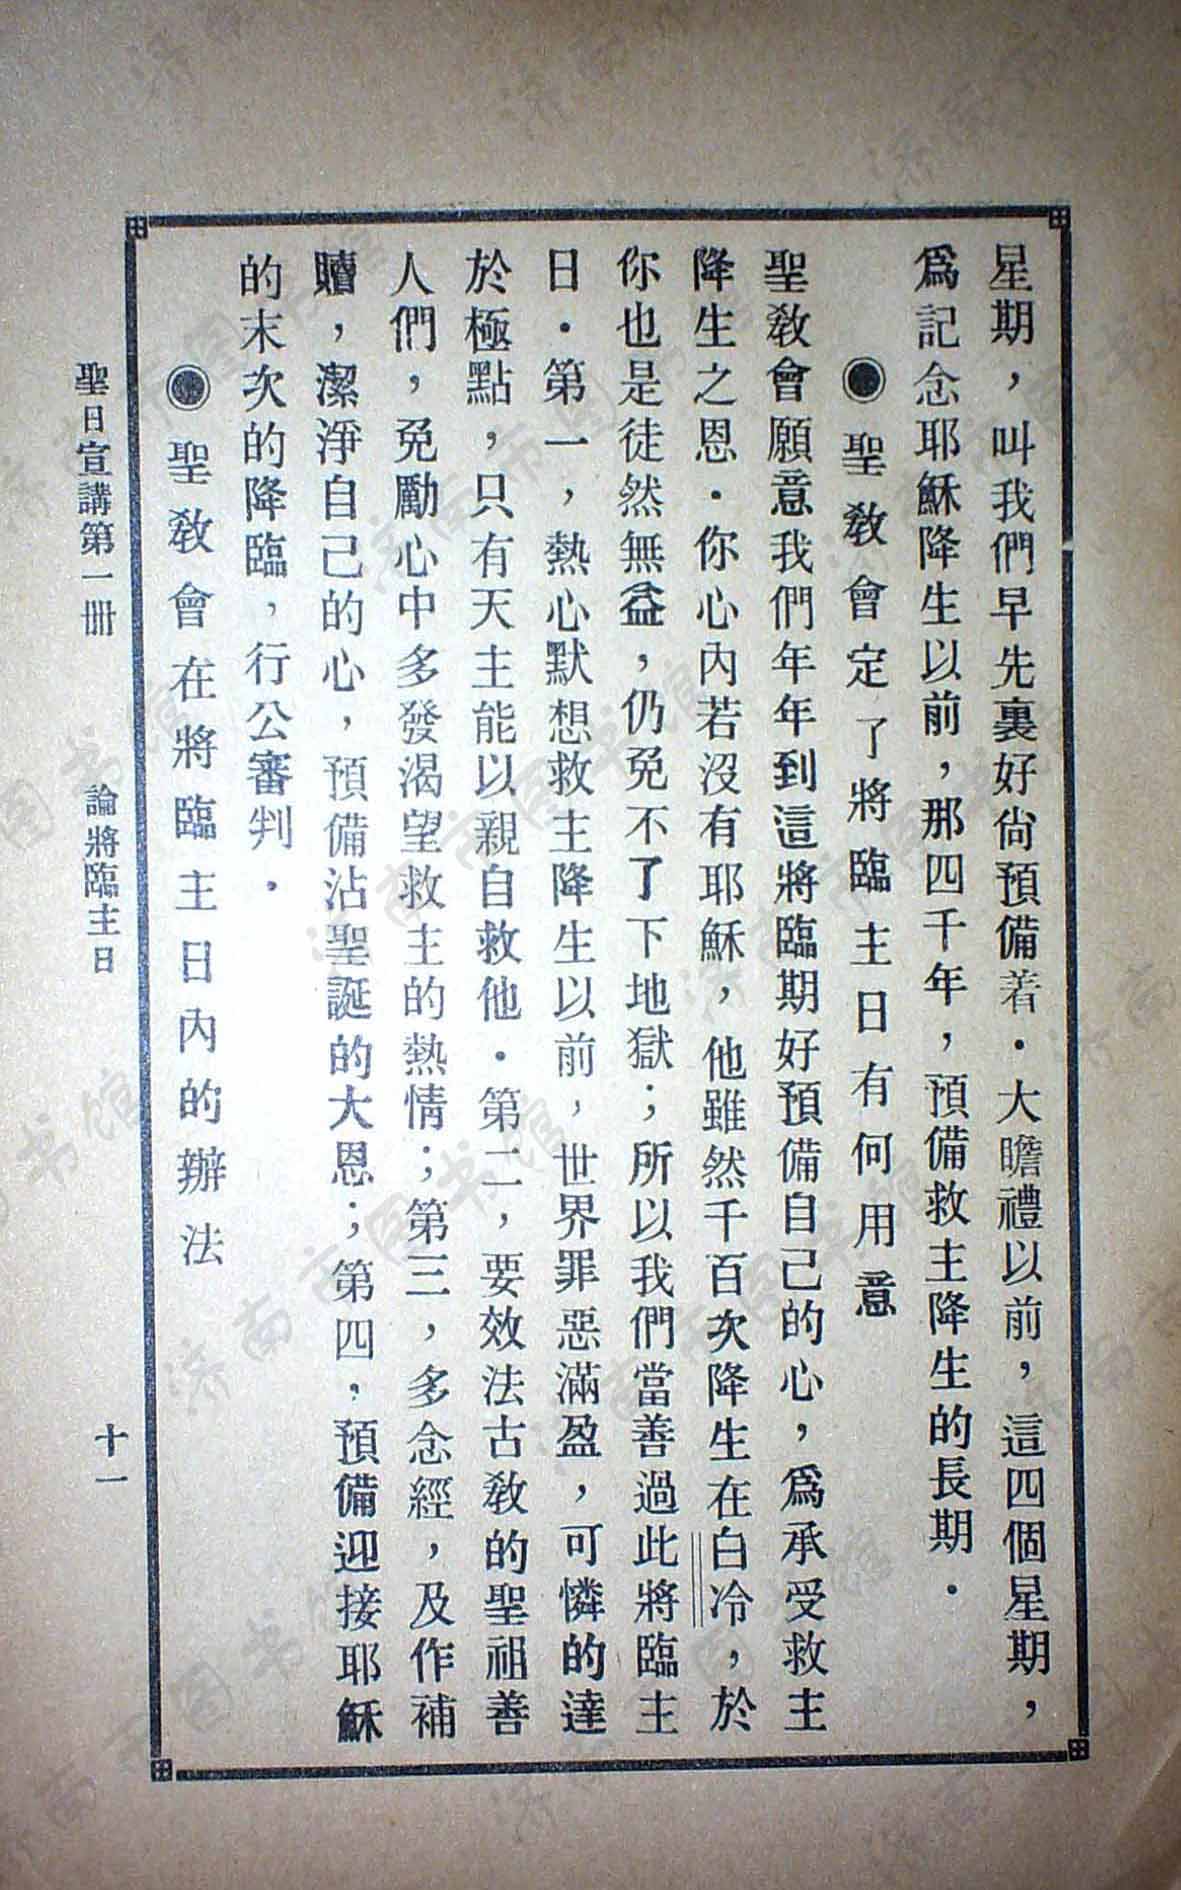 星期，叫我們早先裏好尙預備着．大瞻禮以前，這四個星期，
爲記念耶穌降生以前，那四千年，預備救主降生的長期．
◉聖教會定了將臨主日有何用意
聖教會願意我們年年到這將臨期好預備自己的心，爲承受救主
降生之恩．你心內若沒有耶穌，他雖然千百次降生在白冷，於
你也是徒然無益，仍免不了下地獄；所以我們當善過此將臨主
日．第一，熱心默想救主降生以前，世界罪惡滿盈，可憐的達
於極點，只有天主能以親自救他．第二，要效法古教的聖祖善
人們，免勵心中多發渴望救主的熱情；第三，多念經，及作補
贖，潔淨自己的心，預備沾聖誕的大恩；第四，預備迎接耶穌
的末次的降臨，行公審判．
◉聖教會在將臨主日內的辦法
聖日宣講第一冊 論將臨主日 十一
济南市图书馆